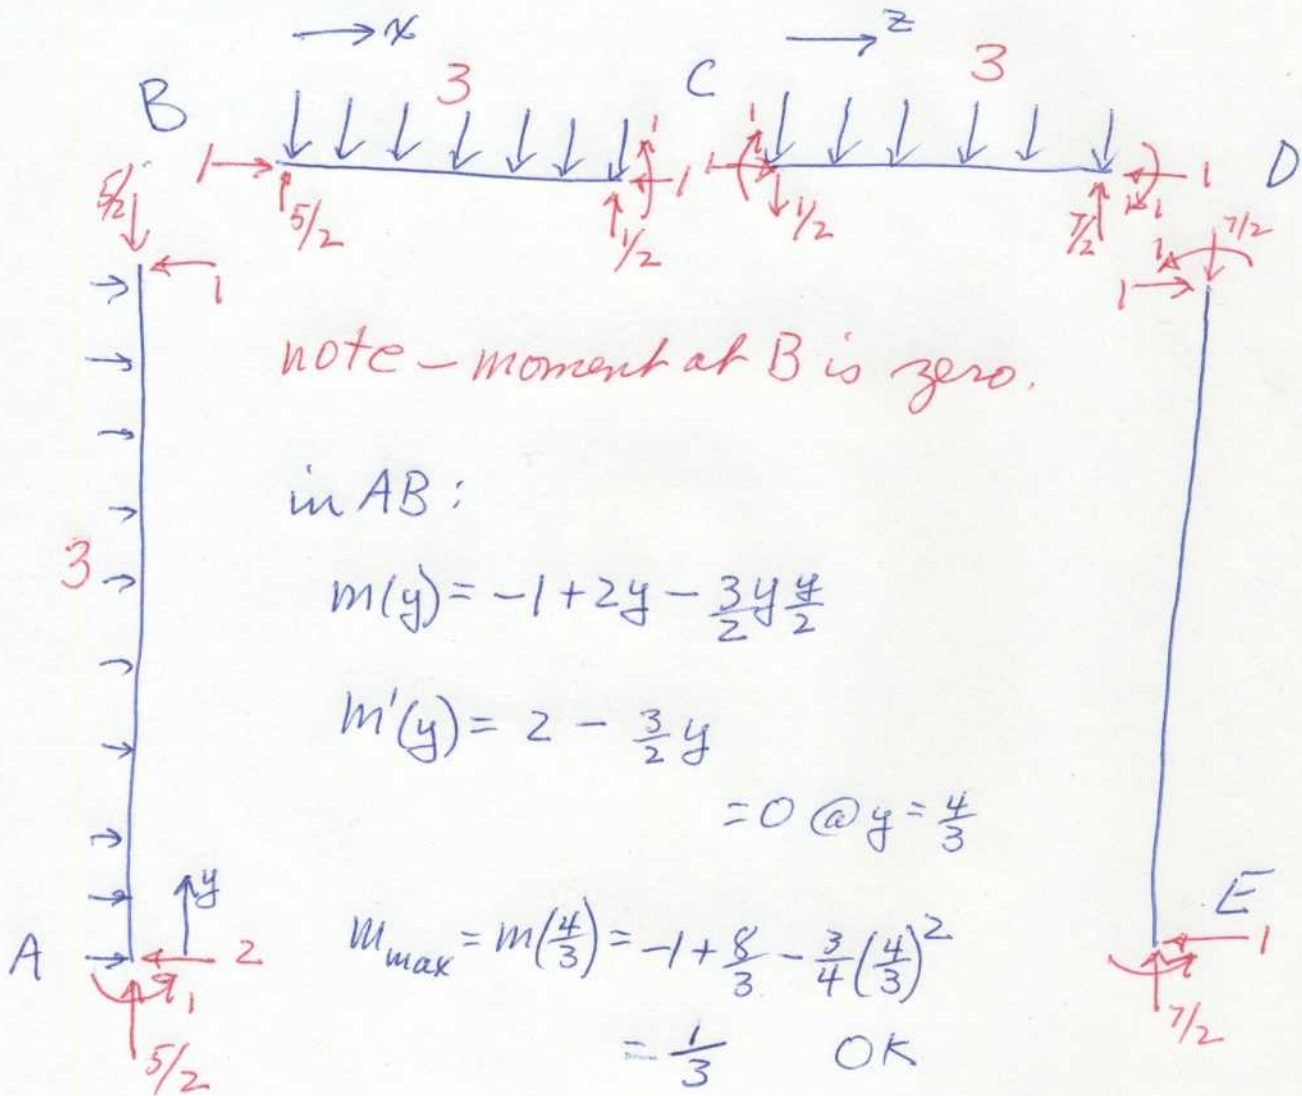 → x
→ z
B
3
C
3
D
5/2
1
5/2
1
1
1/2
1
1
1/2
7/2
1
1
7/2
1
1
1
note – moment at B is zero.
in AB:
3
m(y) = -1 + 2y - 3/2 y y/2
m'(y) = 2 - 3/2 y
= 0 @ y = 4/3
y
A
2
1
5/2
m_max = m(4/3) = -1 + 8/3 - 3/4 (4/3)^2
= 1/3 OK
E
1
1
7/2